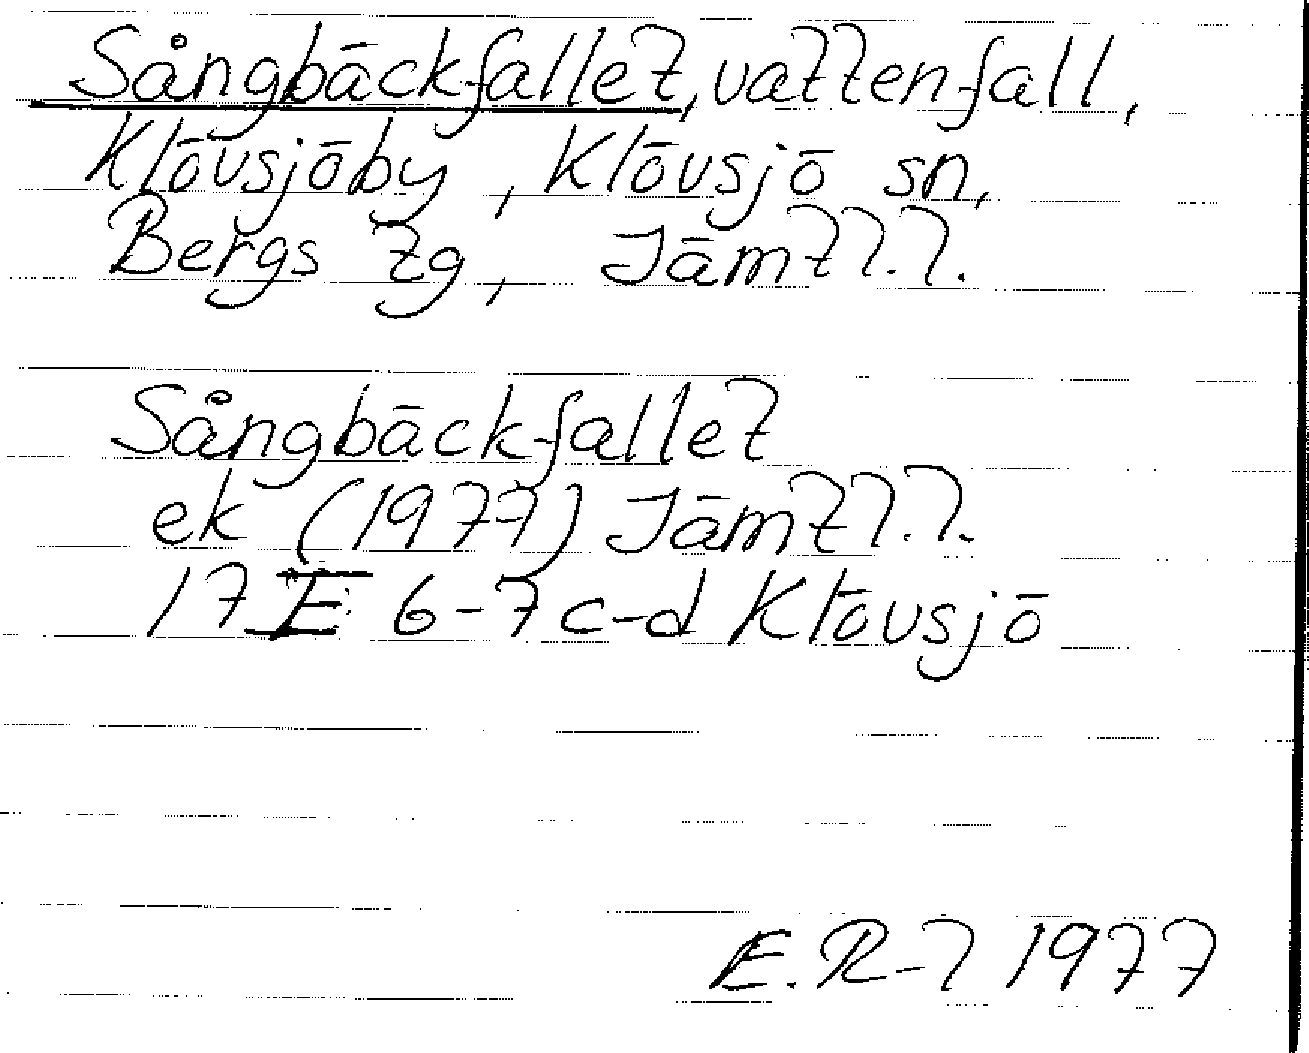 Sångbäckfallet, vattenfall,
Klövsjöby, Klövsjö sn,
Bergs tg,
Sångbäckfallet
ek (1977)
17 E 6-7 c-d Klövsjö
1977